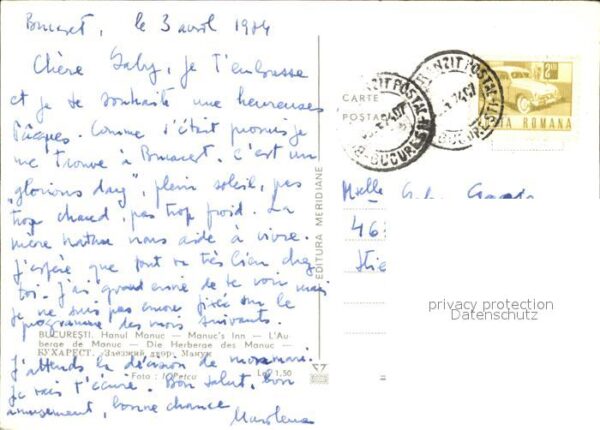 Bucarest, le 3 avril 1974
Chère Gaby, je t'embrasse
et je te souhaite une heureuses
Pâques. Comme c'était promis je
me trouve à Bucarest. C'est un
„glorious day", plein soleil, pas
trop chaud, pas trop froid. La
mère nature nous aide à vivre.
J'espère que tout va très bien chez
toi. J'ai grand envie de te voir mais
je ne suis pas encore fixée sur le
programme des mois suivants.
BUCUREȘTI. Hanul Manuc — Manuc's Inn — L'Au
berge de Manuc — Die Herberge des Manuc —
БУХАРЕСТ. Заезжий двор Манук
J'attends la décision de
Foto : Petcu Lei 1,50
Je vais t'écrire. Bon salut, bon
amusement, bonne chance
Marilena
EDITURA MERIDIANE
CARTE
POSTALĂ
TRANZIT POSTAL
BUCUREȘTI
TRANZIT POSTAL
BUCUREȘTI
POSTA ROMANA
Mselle Gaby
46
privacy protection
Datenschutz